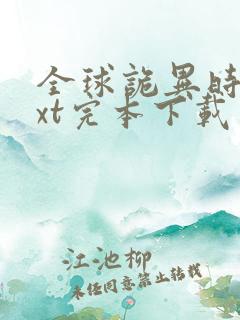 全球詭異時
xt完本下載
江池柳
未经同意禁止转载